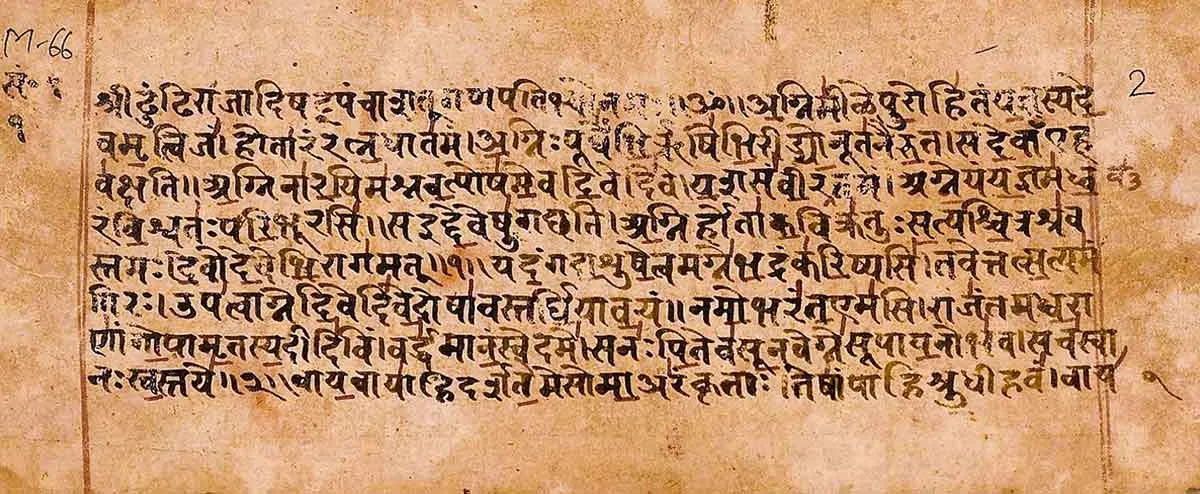 M-66
2
१
श्रीढुंढिराजादिषट्पंचाशत् गणपतिभ्योनमः॥ॐ॥अग्निमीळेपुरोहितंयज्ञस्यदे
वमृत्विजं।होतारंरत्नधातमं।अग्निःपूर्वेभिर्ऋषिभिरीड्योनूतनैरुत।सदेवाँएह
वक्षति॥अग्निनारयिमश्नवत्पोषमेवदिवेदिवे।यशसंवीरवत्तमं।अग्नेयंयज्ञमध्व
रंविश्वतःपरिभूरसि॥सइद्देवेषुगछति।अग्निर्होताकविक्रतुःसत्यश्चित्रश्रव
स्तमः।देवोदेवेभिरागमत्॥१॥यदंगदाशुषेत्वमग्नेभद्रंकरिष्यसि।तवेत्तत्सत्यमं
गिरः।उपत्वाग्नेदिवेदिवेदोषावस्तर्द्धियावयं॥नमोभरंतएमसि।राजंतमध्वरा
णांगोपामृतस्यदीदिविं।वर्द्धमानंस्वेदमे।सनःपितेवसूनवेग्नेसूपायनोभव।सचस्वा
नःस्वस्तये॥२॥वायवायाहिदर्शतेमेसोमाअरंकृताः।तेषांपाहिश्रुधीहवं।वाय